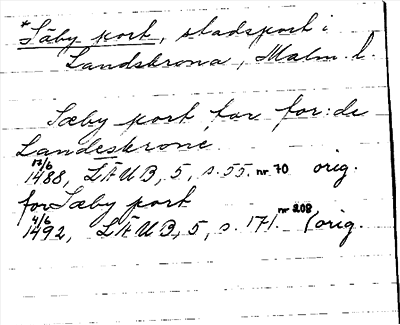 *Säby port, stadsport i
Landskrona, Malm. l.
Sæby port for for:de
Landeskrone
17/6
1488, LÄUB, 5, s. 55. nr 70 orig.
for Sæby port
4/6
1492, LÄUB, 5, s. 171. nr 208 (orig.